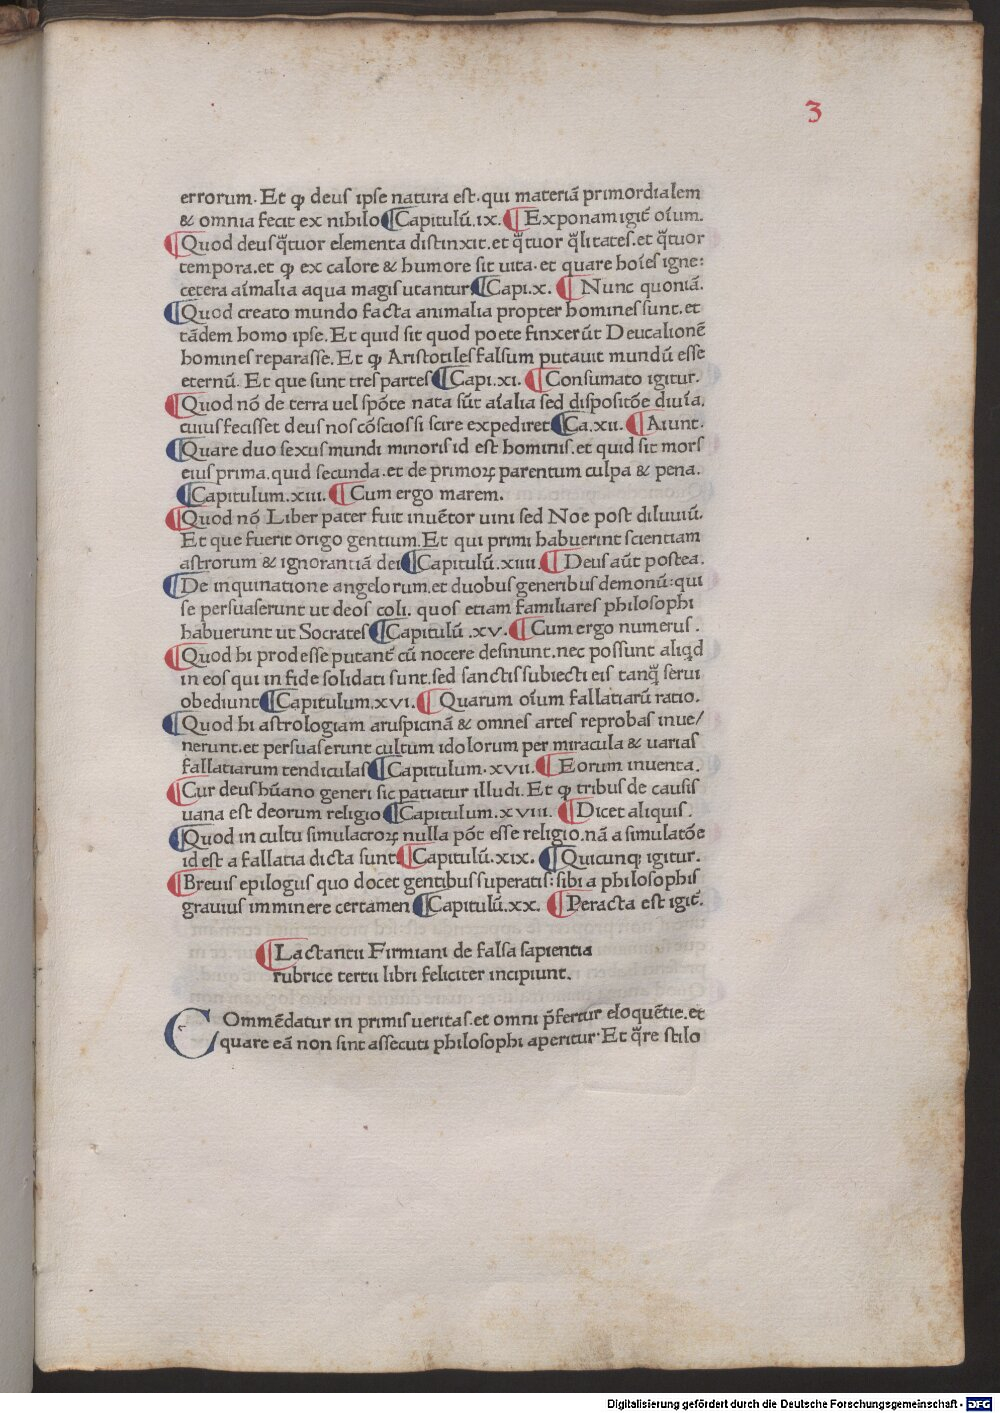 3
errorum. Et ꝙ deus ipse natura est. qui materiā primordialem
& omnia fecit ex nihilo ¶Capitulū. ix. ¶Exponam igit̄ oīum.
¶Quod deus q̄tuor elementa distinxit. et q̄tuor q̄litates. et q̄tuor
tempora. et ꝙ ex calore & humore sit uita. et quare hoīes igne:
cetera aīmalia aqua magis utantur ¶Capi. x. ¶Nunc quoniā.
¶Quod creato mundo facta animalia propter homines sunt. et
tādem homo ipse. Et quid sit quod poete finxerūt Deucalionē
homines reparasse. Et ꝙ Aristotiles falsum putauit mundū esse
eternū. Et que sunt tres partes ¶Capi. xi. ¶Consumato igitur.
¶Quod nō de terra uel spōte nata sūt aīalia sed dispositōe diuīa.
cuius fecisset deus nos cōscios si scire expediret ¶Ca. xii. ¶Aiunt.
¶Quare duo sexus mundi minoris id est hominis. et quid sit mors
eius prima. quid secunda. et de primoꝝ parentum culpa & pena.
¶Capitulum. xiii. ¶Cum ergo marem.
¶Quod nō Liber pater fuit inuētor uini sed Noe post diluuiū.
Et que fuerit origo gentium. Et qui primi habuerint scientiam
astrorum & ignorantiā dei ¶Capitulū. xiiii. ¶Deus aūt postea.
¶De inquinatione angelorum. et duobus generibus demonū: qui
se persuaserunt ut deos coli. quos etiam familiares philosophi
habuerunt ut Socrates ¶Capitulū .xv. ¶Cum ergo numerus.
¶Quod hi prodesse putant̄ cū nocere desinunt. nec possunt aliqd
in eos qui in fide solidati sunt. sed sanctis subiecti eis tanq̄ serui
obediunt ¶Capitulum. xvi. ¶Quarum oīum fallatiarū ratio.
¶Quod hi astrologiam aruspicinā & omnes artes reprobas inue/
nerunt. et persuaserunt cultum idolorum per miracula & uarias
fallatiarum tendiculas ¶Capitulum. xvii. ¶Eorum inuenta.
¶Cur deus hūano generi sic patiatur illudi. Et ꝙ tribus de causis
uana est deorum religio ¶Capitulum. xviii. ¶Dicet aliquis.
¶Quod in cultu simulacroꝝ nulla pōt esse religio. nā a simulatōe
id est a fallatia dicta sunt ¶Capitulū. xix. ¶Quicunqꝫ igitur.
¶Breuis epilogus quo docet gentibus superatis: sibi a philosophis
grauius imminere certamen ¶Capitulū. xx. ¶Peracta est igit̄.
¶Lactantii Firmiani de falsa sapientia
rubrice tertii libri feliciter incipiunt.
COmmēdatur in primis ueritas. et omni p̄fertur eloquētie. et
quare eā non sint assecuti philosophi aperitur. Et q̄re stilo
Digitalisierung gefördert durch die Deutsche Forschungsgemeinschaft - DFG